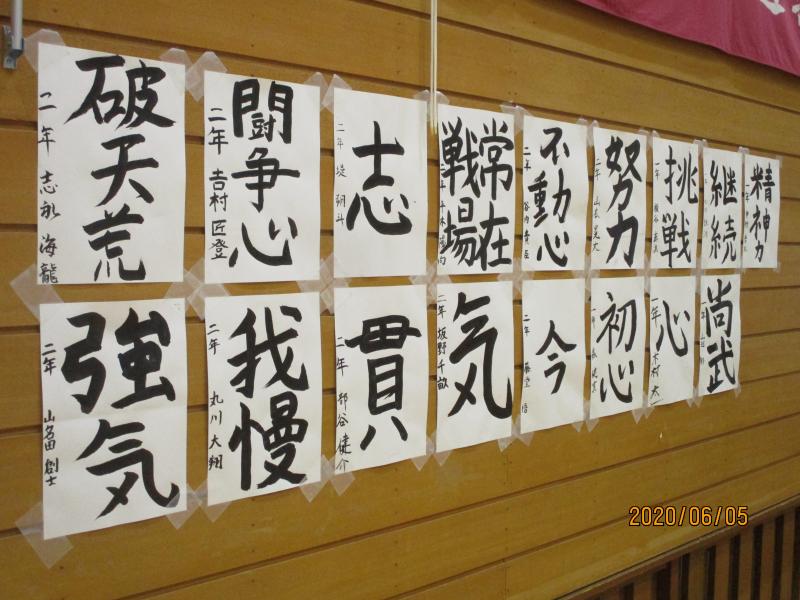 破天荒
二年 志永 海龍
闘争心
二年 吉村 匠登
志
二年 堤
常在
戦場
二年
不動心
二年 谷内
努力
二年 山本
挑戦
二年
継続
精神力
強気
二年 山名田 創士
我慢
二年 丸川 大翔
貫
二年 郡谷 健介
気
二年 坂野 千畝
今
二年
初心
一年
心
一年 木村 太一
尚武
一年
2020/06/05